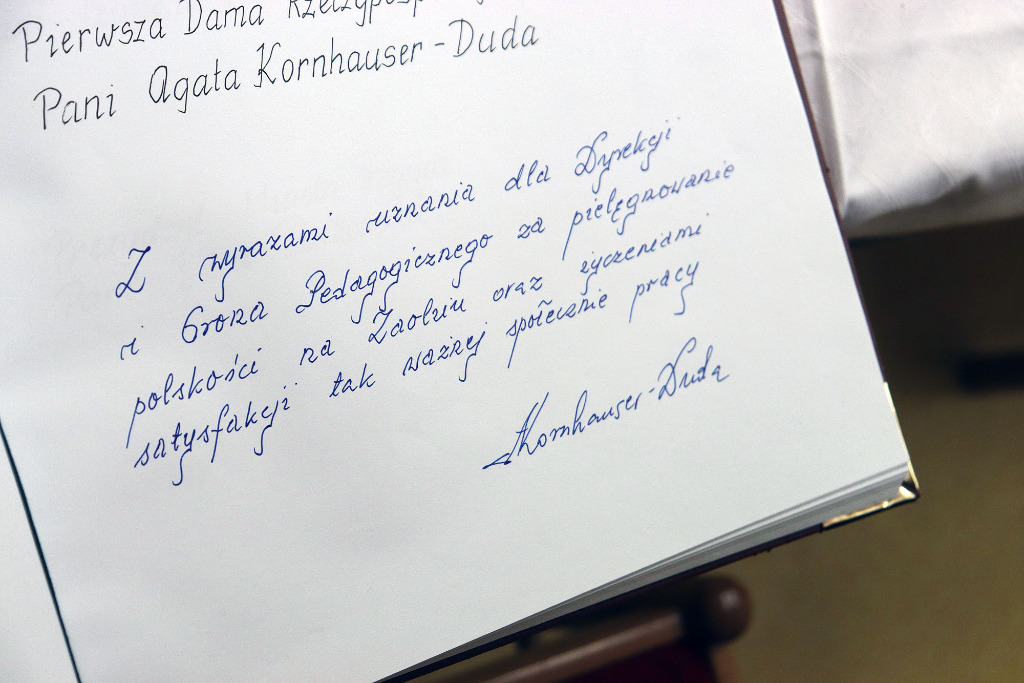 Pierwsza Dama
Pani Agata Kornhauser-Duda
Z wyrazami uznania dla Dyrekcji
i Grona Pedagogicznego za pielęgnowanie
polskości na Zaolziu oraz życzeniami
satysfakcji tak ważnej społecznie pracy
AKornhauser-Duda